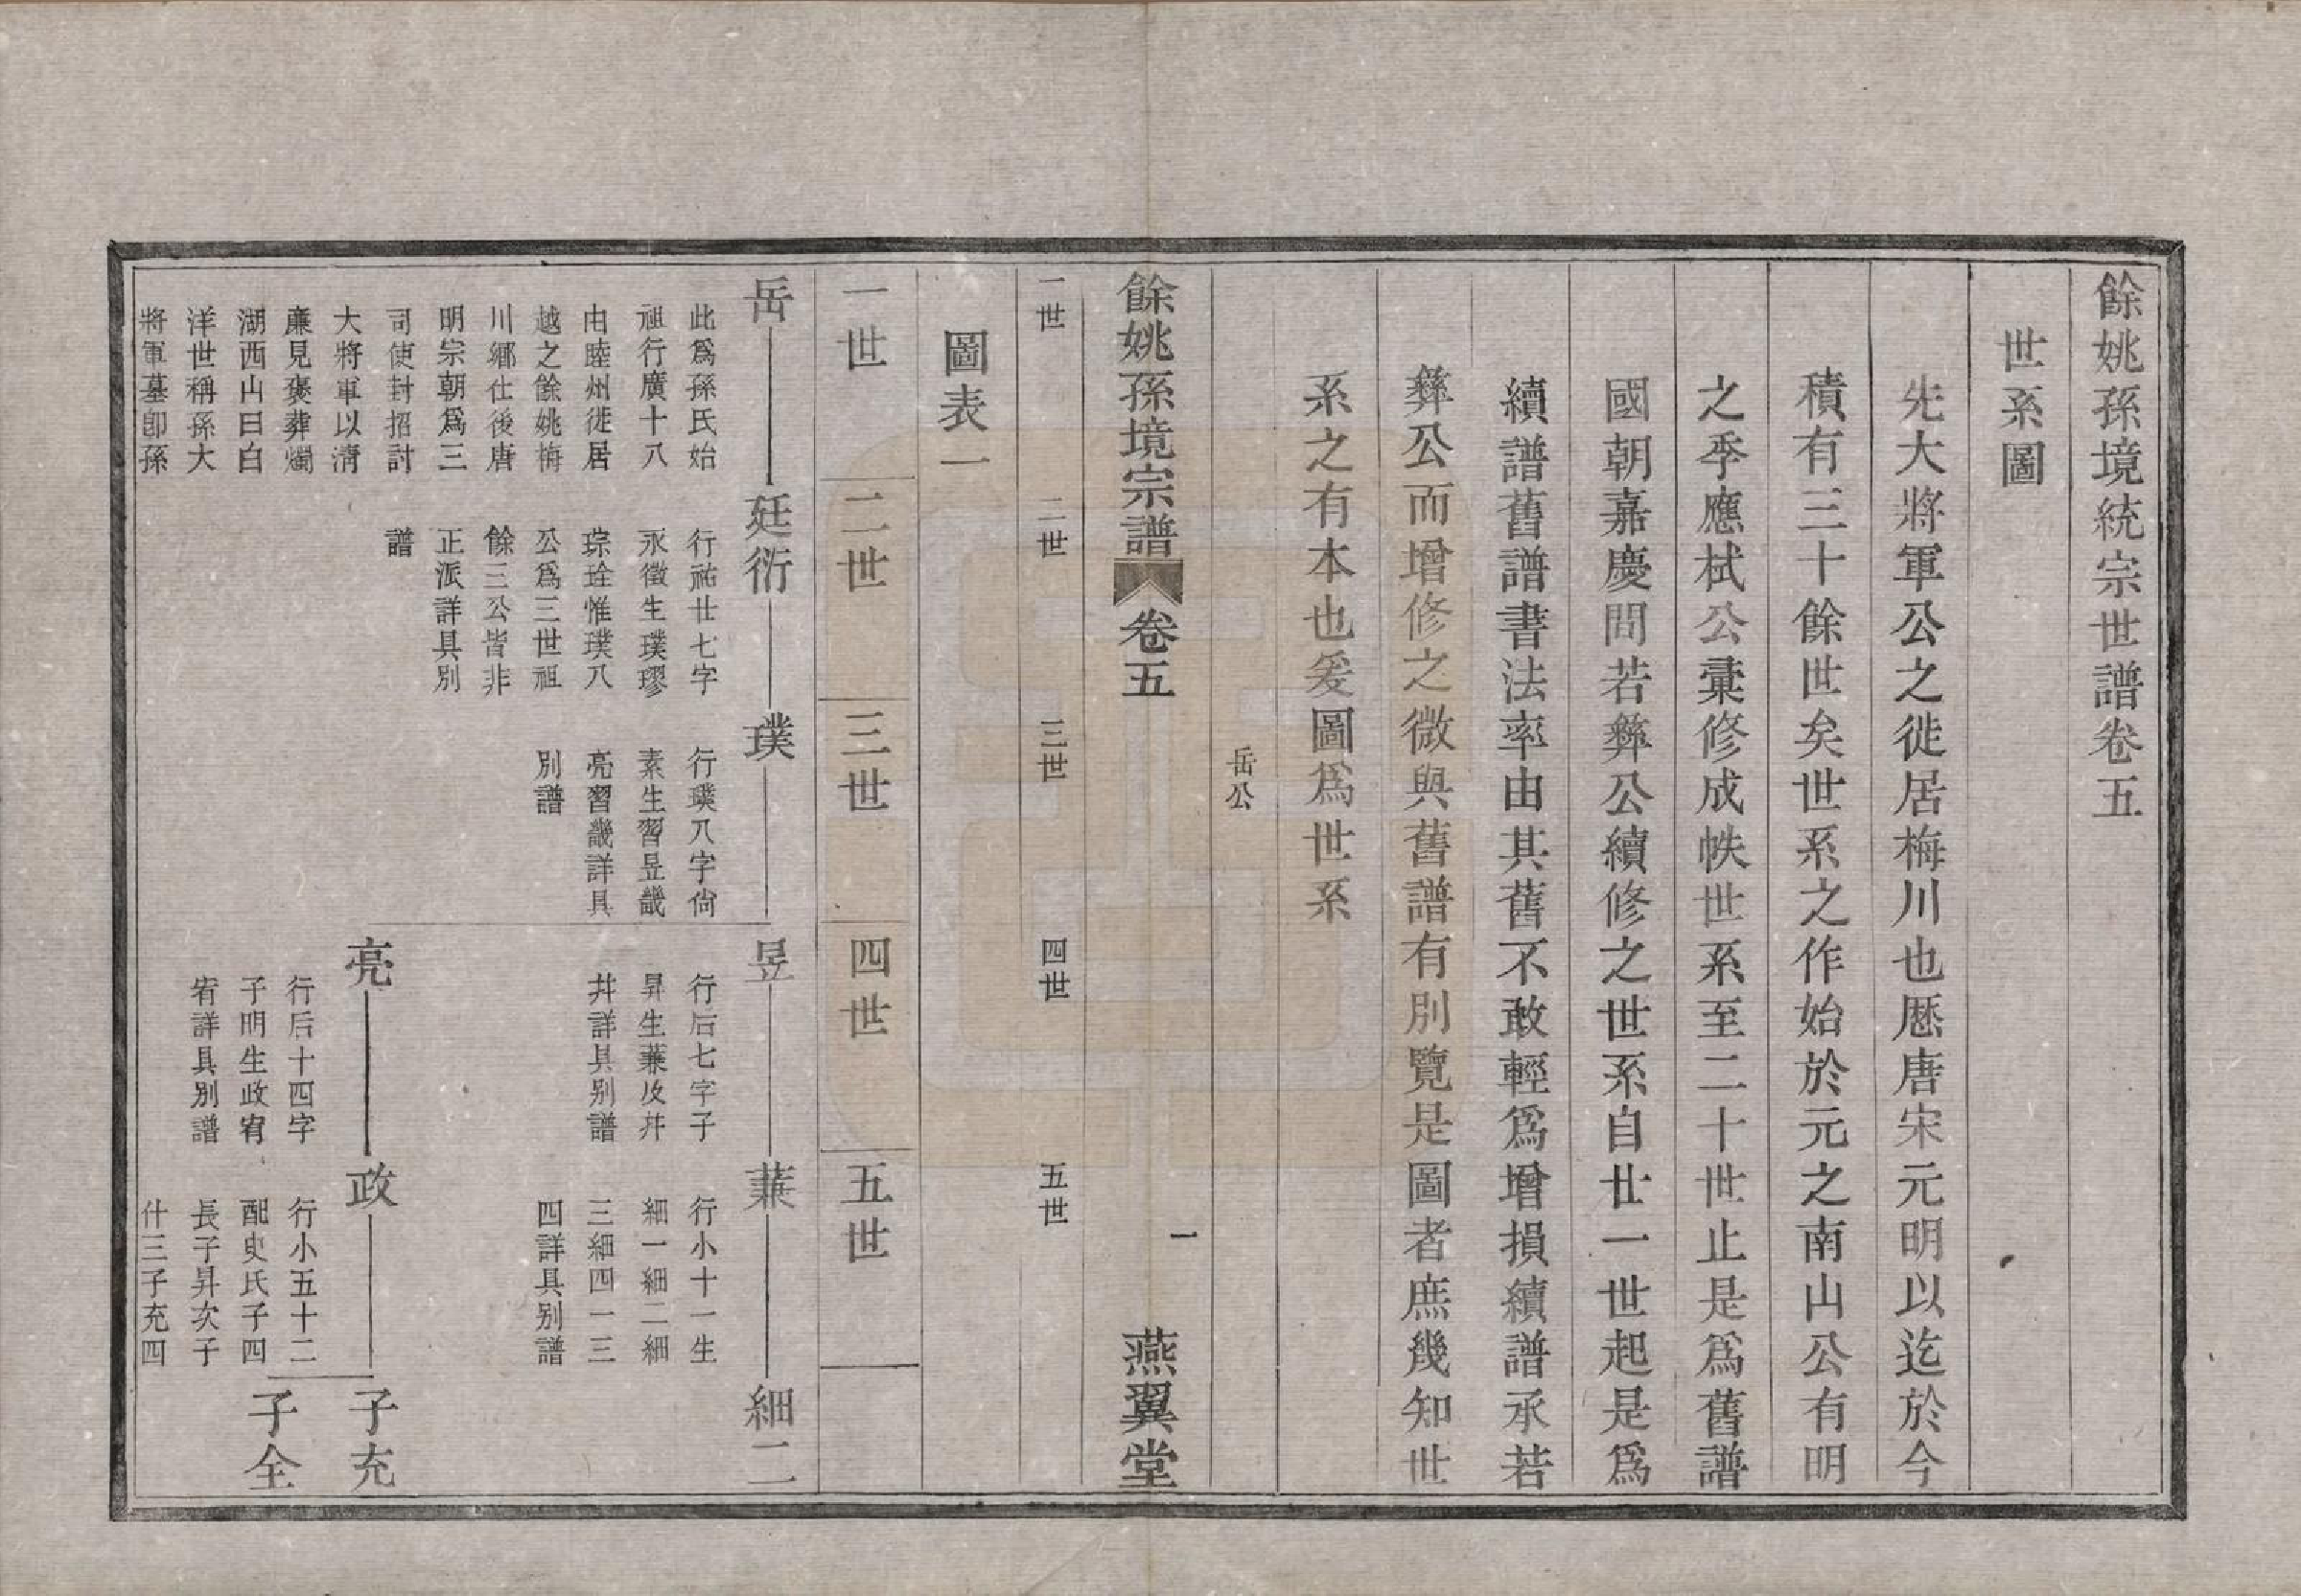 餘姚孫境統宗世譜卷五
世系圖
先大將軍公之徙居梅川也歷唐宋元明以迄於今
積有三十餘世矣世系之作始於元之南山公有明
之季應栻公彙修成帙世系至二十世止是爲舊譜
國朝嘉慶間若彝公續修之世系自廿一世起是爲
續譜舊譜書法率由其舊不敢輕爲增損續譜承若
彝公而增修之微與舊譜有別覽是圖者庶幾知世
系之有本也爰圖爲世系
岳公
餘姚孫境宗譜 卷五 一 燕翼堂
一世 二世 三世 四世 五世
圖表一
一世 二世 三世 四世 五世
岳
此爲孫氏始
祖行廣十八
由睦州徙居
越之餘姚梅
川鄉仕後唐
明宗朝爲三
司使封招討
大將軍以清
廉見褒葬燭
湖西山曰白
洋世稱孫大
將軍墓卽孫
廷衍
行祐廿七字
永徵生璞璆
琮琻惟璞八
公爲三世祖
餘三公皆非
正派詳具別
譜
璞
行璞八字尙
素生習昱畿
亮習畿詳具
別譜
昱
行后七字子
昇生蒹及幷
幷詳具別譜
蒹
行小十一生
細一細二細
三細四一三
四詳具別譜
細二
亮
行后十四字
子明生政宥
宥詳具別譜
政
行小五十二
配史氏子四
長子昇次子
什三子充四
子充
子全